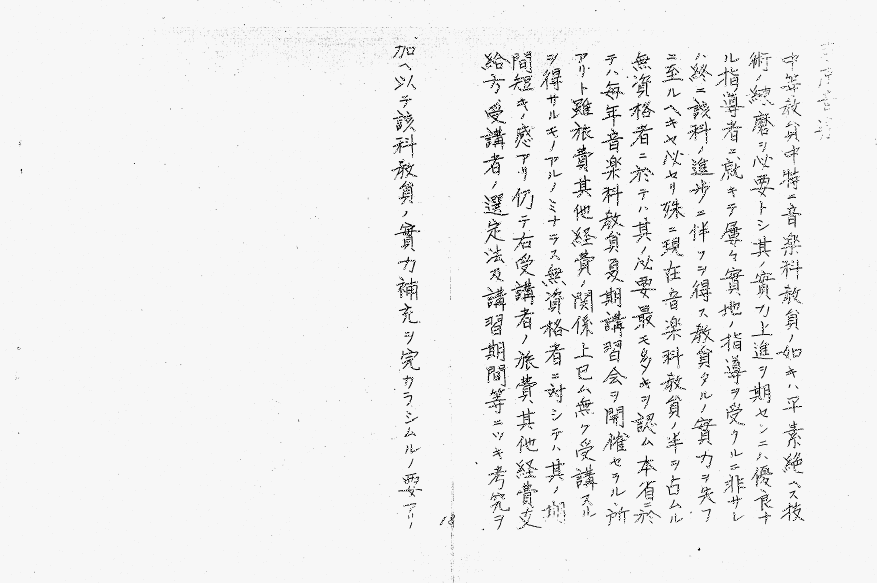 中等教員中特ニ音楽科教員ノ如キハ平素絶ヘス技
術ノ練磨ヲ必要トシ其ノ實力上進ヲ期センニハ優良ナ
ル指導者ニ就キテ屡々實地ノ指導ヲ受クルニ非サレ
ハ終ニ該科ノ進歩ニ伴フヲ得ス教員タルノ實力ヲ失フ
ニ至ルヘキヤ必セリ殊ニ現在音楽科教員ノ半ヲ占ムル
無資格者ニ於テハ其ノ必要最モ多キヲ認ム本省ニ於
テハ毎年音楽科教員夏期講習会ヲ開催セラルヽ所
アリト雖旅費其他経費ノ関係上已ム無ク受講スル
ヲ得サルモノアルノミナラス無資格者ニ対シテハ其ノ期
間短キノ感アリ仍テ右受講者ノ旅費其他経費支
給方受講者ノ選定法及講習期間等ニツキ考究ヲ
加ヘ以テ該科教員ノ實力補充ヲ完カラシムルノ要アリ
18